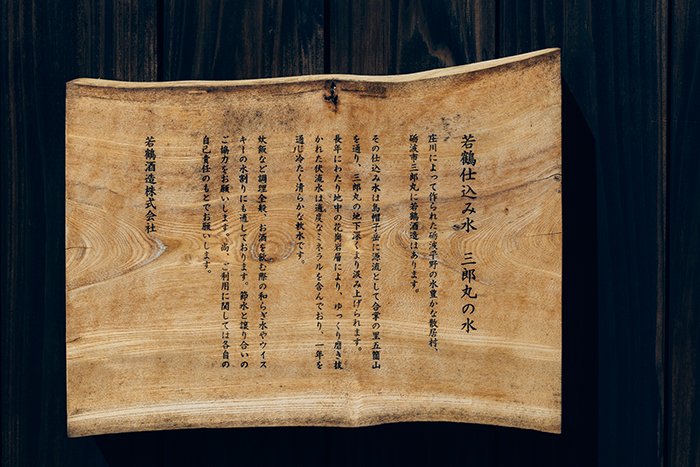 若鶴仕込み水　三郎丸の水
庄川によって作られた砺波平野の水豊かな散居村、
砺波市三郎丸に若鶴酒造はあります。
その仕込み水は烏帽子岳に源流として合掌の里五箇山
を通り、三郎丸の地下深くより汲み上げられます。
長年にわたり地中の花崗岩層により、ゆっくり磨き抜
かれた伏流水は適度なミネラルを含んでおり、一年を
通じ冷たく清らかな軟水です。
炊飯など調理全般、お酒を飲む際の和らぎ水やウイス
キーの水割りにも適しております。節水と譲り合いの
ご協力をお願いします。尚、ご利用に関しては各自の
自己責任のもとでお願いします。
若鶴酒造株式会社